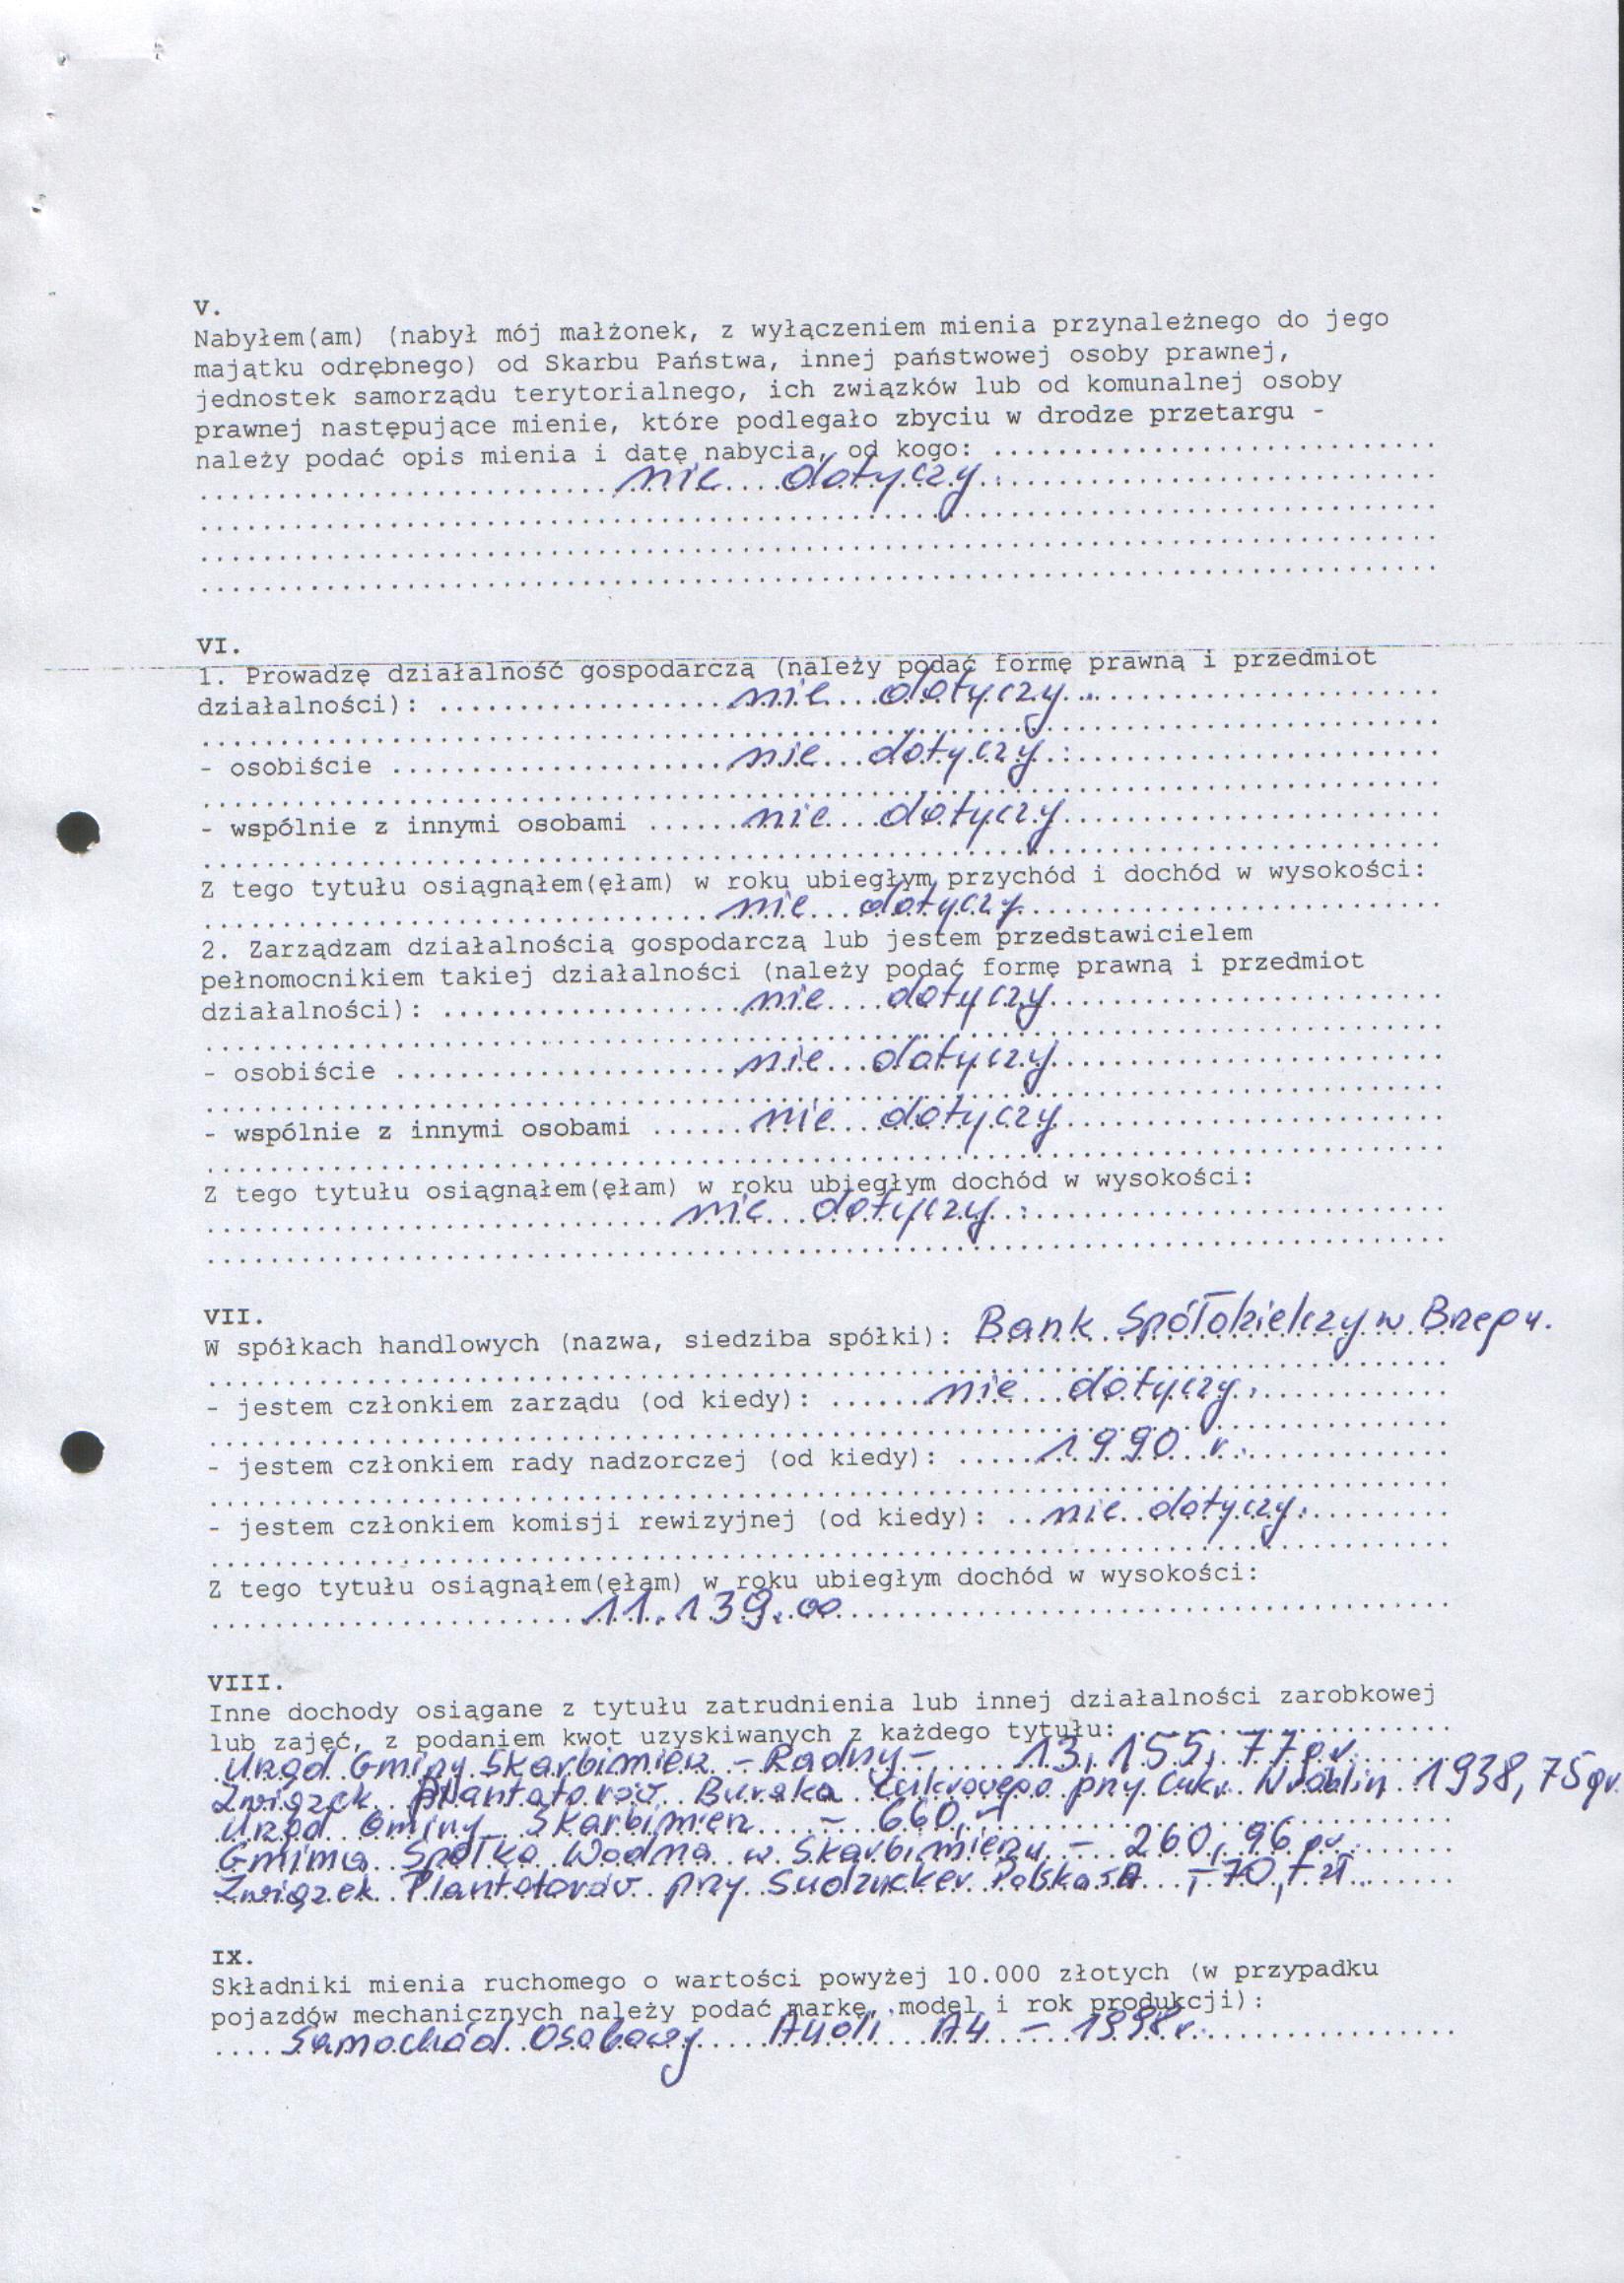 V.
Nabyłem(am) (nabył mój małżonek, z wyłączeniem mienia przynależnego do jego
majątku odrębnego) od Skarbu Państwa, innej państwowej osoby prawnej,
jednostek samorządu terytorialnego, ich związków lub od komunalnej osoby
prawnej następujące mienie, które podlegało zbyciu w drodze przetargu -
należy podać opis mienia i datę nabycia, od kogo:
nie dotyczy.
VI.
1. Prowadzę działalność gospodarczą (należy podać formę prawną i przedmiot
działalności): nie dotyczy.
- osobiście nie dotyczy.
- wspólnie z innymi osobami nie dotyczy
Z tego tytułu osiągnąłem(ęłam) w roku ubiegłym przychód i dochód w wysokości:
nie dotyczy
2. Zarządzam działalnością gospodarczą lub jestem przedstawicielem
pełnomocnikiem takiej działalności (należy podać formę prawną i przedmiot
działalności): nie dotyczy
- osobiście nie dotyczy
- wspólnie z innymi osobami nie dotyczy
Z tego tytułu osiągnąłem(ęłam) w roku ubiegłym dochód w wysokości:
nie dotyczy.
VII.
W spółkach handlowych (nazwa, siedziba spółki): Bank Spółdzielczy w Brzegu.
- jestem członkiem zarządu (od kiedy): nie dotyczy.
- jestem członkiem rady nadzorczej (od kiedy): 1990 r.
- jestem członkiem komisji rewizyjnej (od kiedy): nie dotyczy.
Z tego tytułu osiągnąłem(ęłam) w roku ubiegłym dochód w wysokości:
11.139.00
VIII.
Inne dochody osiągane z tytułu zatrudnienia lub innej działalności zarobkowej
lub zajęć, z podaniem kwot uzyskiwanych z każdego tytułu:
Urząd Gminy Skarbimierz - Radny - 13.155,77 gr.
Związek Plantatorów Buraka Cukrowego przy Cukr. Wróblin 1938,75 gr
Urząd Gminy Skarbimierz - 660,-
Gminna Spółka Wodna w Skarbimierzu - 260,96 gr.
Związek Plantatorów przy Sudzucker Polska SA - 70,- zł.
IX.
Składniki mienia ruchomego o wartości powyżej 10.000 złotych (w przypadku
pojazdów mechanicznych należy podać markę, model i rok produkcji):
Samochód Osobowy Audi A4 - 1998 r.